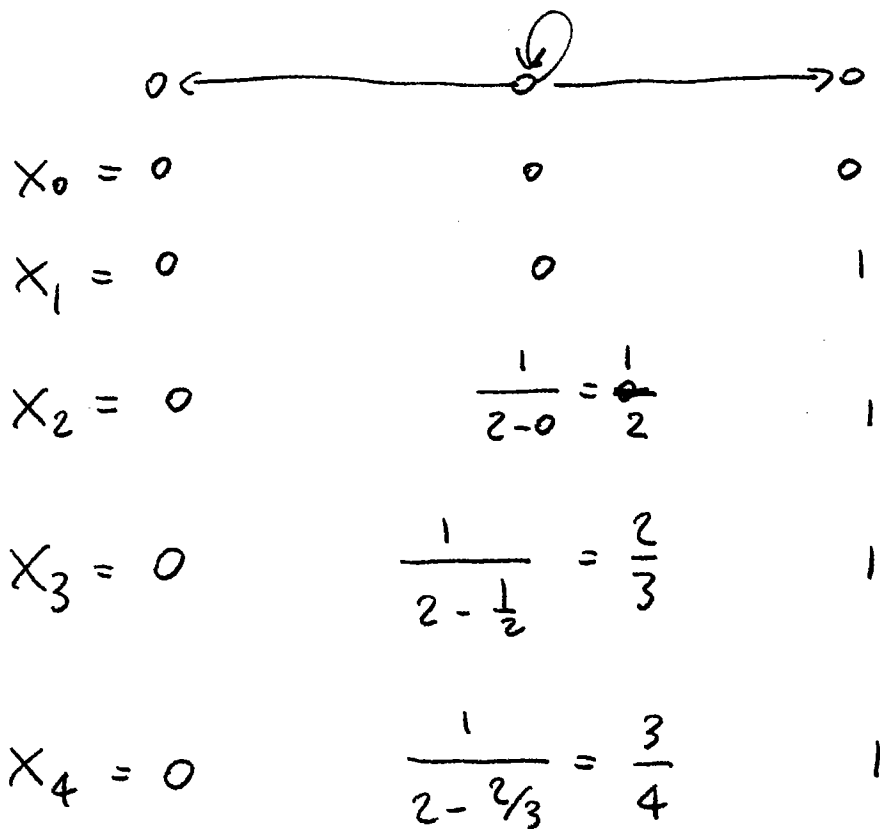 X₀ = 0 0 0
X₁ = 0 0 1
X₂ = 0 1/(2-0) = 1/2 1
X₃ = 0 1/(2 - 1/2) = 2/3 1
X₄ = 0 1/(2 - 2/3) = 3/4 1